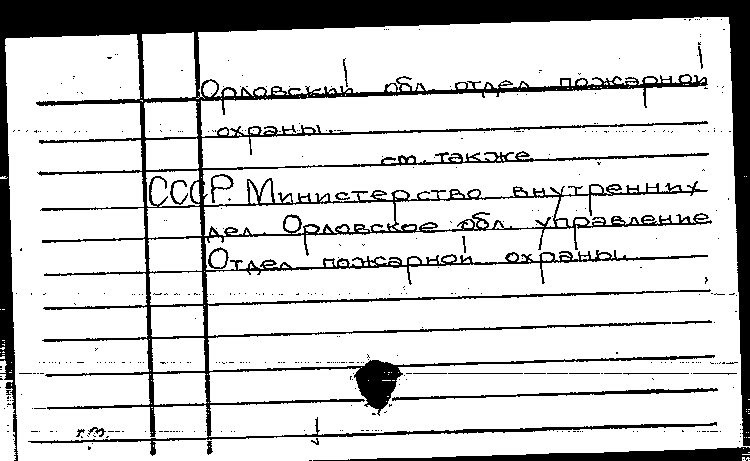 Орловский обл. отдел пожарной
охраны.
см. также
СССР. Министерство внутренних
дел. Орловское обл. управление
Отдел пожарной охраны.